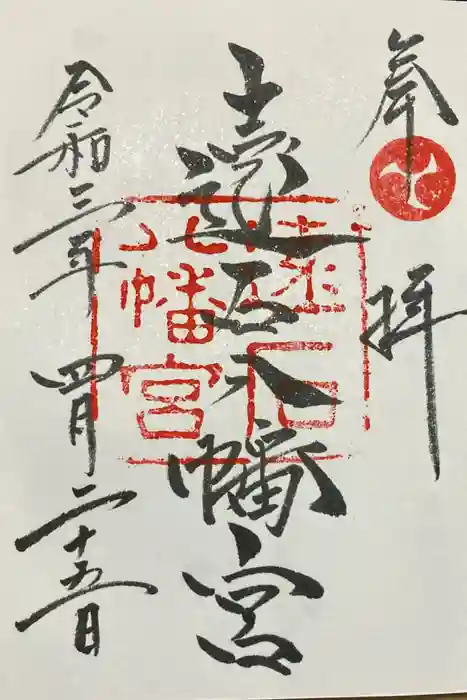 奉拝
遠石八幡宮
遠石
八幡宮
令和三年四月二十五日